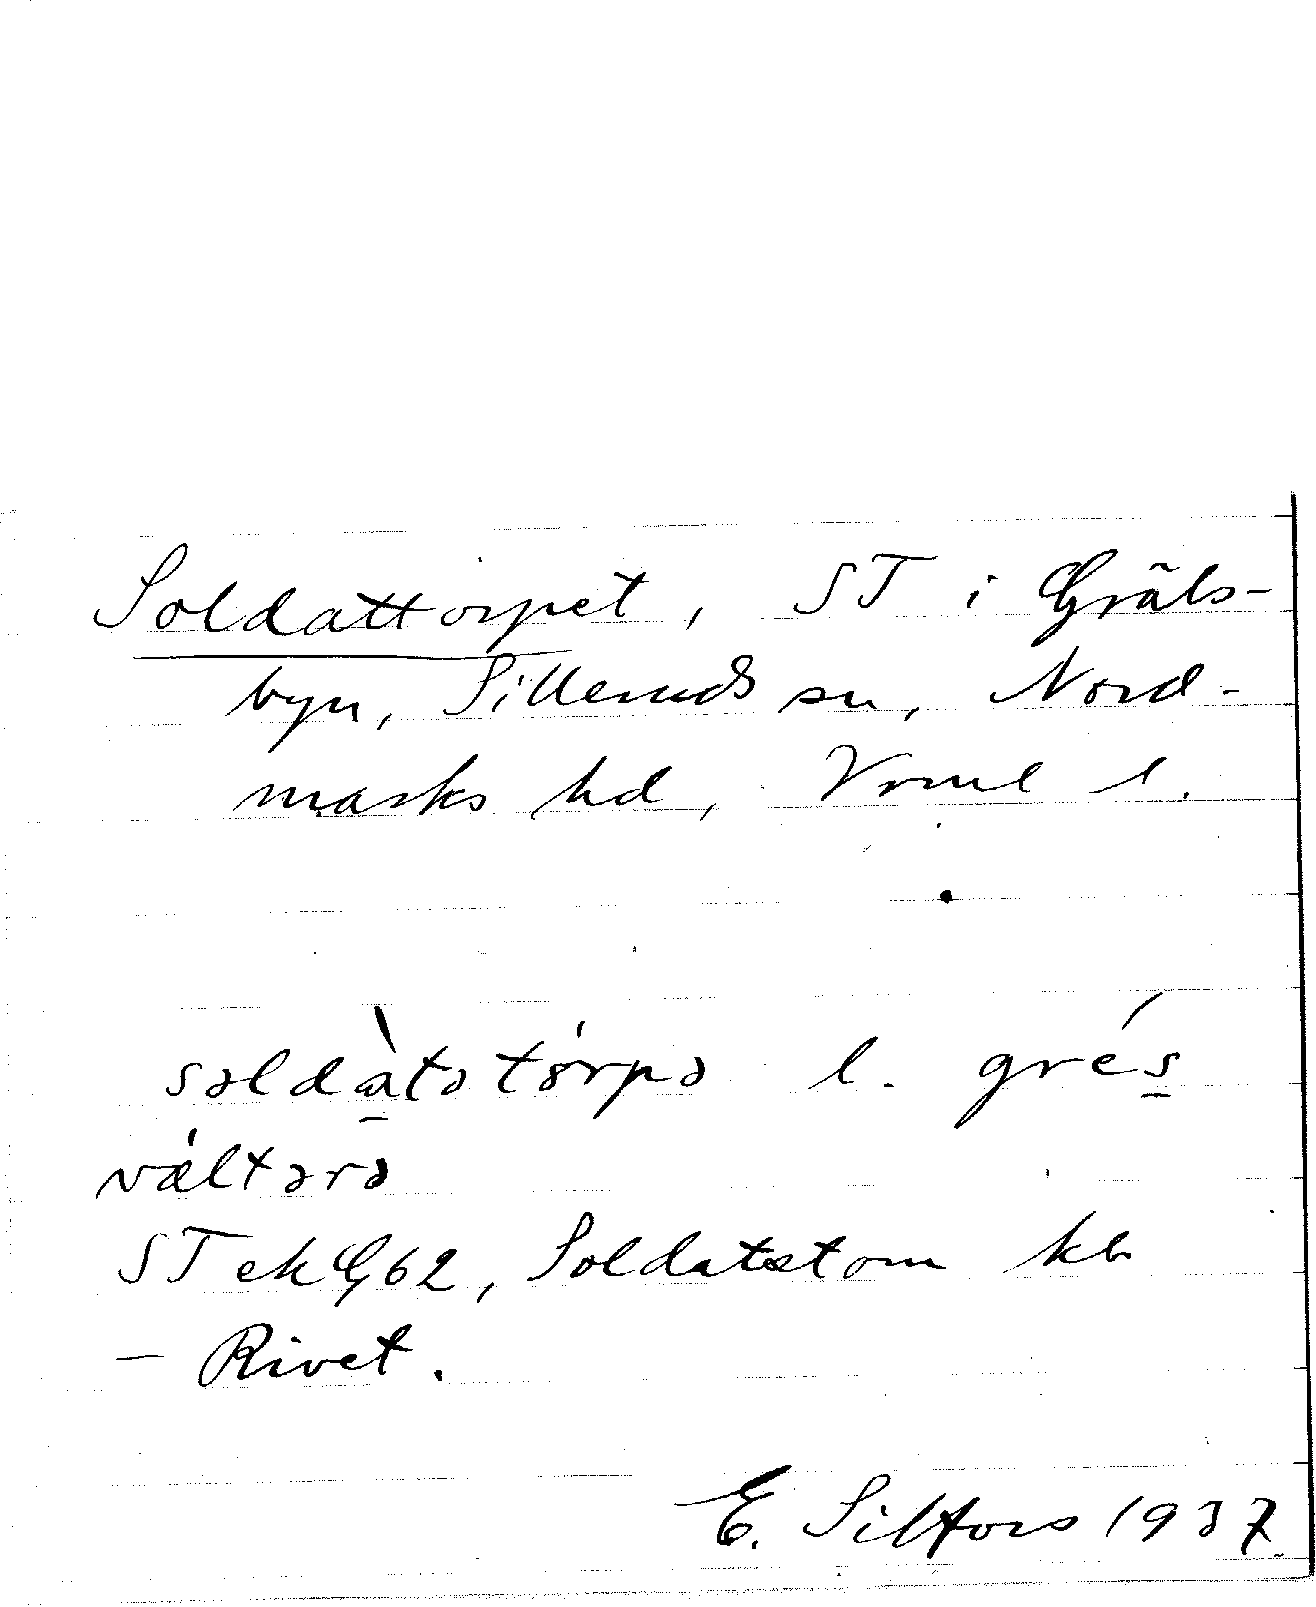 Soldattorpet, ST i Gräls-
byn, Silleruds sn, Nord-
marks hd, Vrml l.
səldàtətȯ́rpə l. grés̱
vǽltərə
ST ek G62, Soldatstom kb
– Rivet.
E. Silfors 1937.